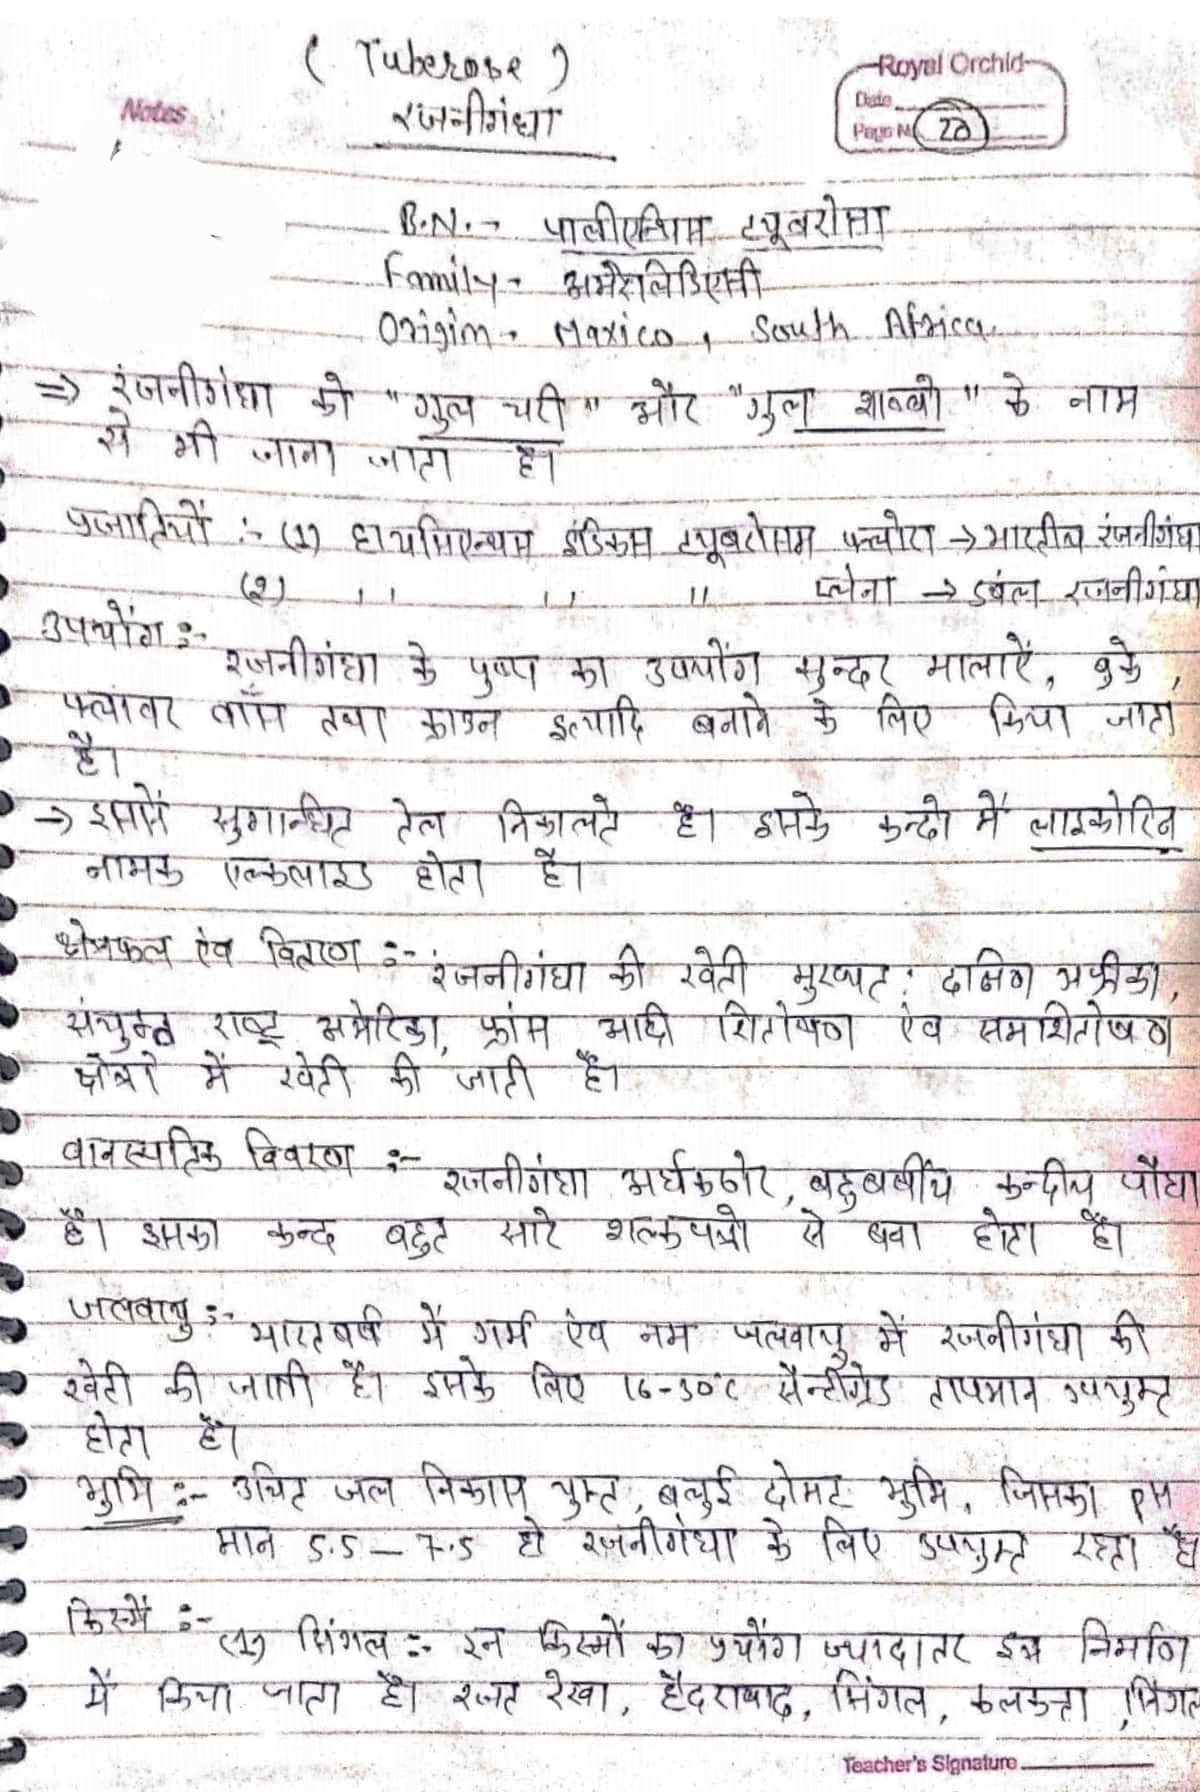 ( Tuberose )
Notes
Royal Orchid
रजनीगंधा
Date
Page No 20
B.N. → पालीएन्थिस ट्यूबरोसा
Family → अमेरीलिडिएसी
Origin → Maxico, South Africa.
⇒ रंजनीगंधा को "गुल चरी" और "गुल शब्बो" के नाम
से भी जाना जाता है।
प्रजातियाँ :- (1) हायसिएन्थस इंडिकस ट्यूबरोसस फ्लोरा → भारतीय रंजनीगंधा
(2) ,, ,, ,, प्लेना → डबल रजनीगंधा
उपयोंग :-
रजनीगंधा के पुष्प का उपयोंग सुन्दर मालाऐं, बुके,
फ्लावर वॉस तथा क्राउन इत्यादि बनाने के लिए किया जाता
है।
→ इससे सुगान्धित तेल निकालते है। इसके कन्दो में लाइकोरिन
नामक एल्कलाइड होता है।
क्षेत्रफल एंव वितरण :- रंजनीगंधा की खेती मुख्यत: दक्षिण अफ्रीका,
संयुक्त राष्ट्र अमेरिका, फ्रांस आदी शितोषण एंव समशितोषण
क्षेत्रो में खेती की जाती है।
वानस्पतिक विवरण :- रजनीगंधा अर्धकठोर, बहुबर्षीय कन्दीय पौधा
है। इसका कन्द बहुत सारे शल्कपत्रो से बवा होता है।
जलवायु :- भारतबर्ष में गर्म एंव नम जलवायु में रजनीगंधा की
खेती की जाती है। इसके लिए 16-30°C सैन्टीग्रेड तापमान उपयुक्त
होता है।
भुमि :- उचित जल निकास युक्त, बलुई दोमट भुमि, जिसका PH
मान 5.5 – 7.5 हो रजनीगंधा के लिए उपयुक्त रहता है
किस्में :-
(1) सिंगल :- इन किस्मों का प्रयोंग ज्यादातर इत्र निर्माण
में किया जाता है। रजत रेखा, हैदराबाद, सिंगल, कलकत्ता, सिंगल
Teacher's Signature